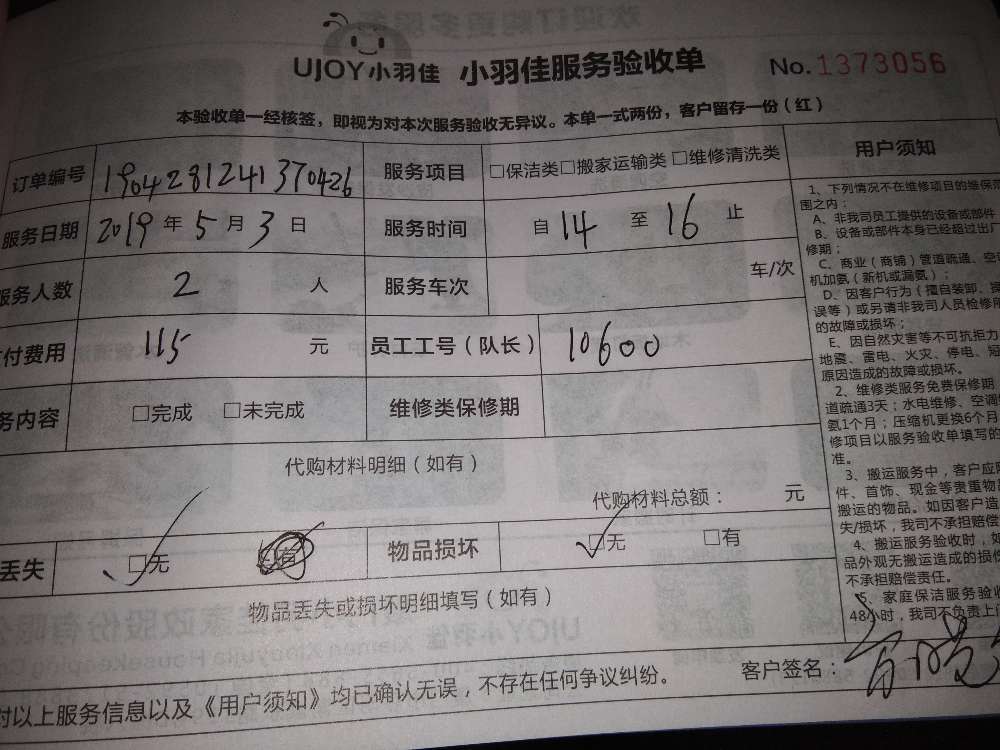 UJOY小羽佳 小羽佳服务验收单 No.1373056
本验收单一经核签，即视为对本次服务验收无异议。本单一式两份，客户留存一份（红）
订单编号 1904281241370426 服务项目 □保洁类□搬家运输类 □维修清洗类
服务日期 2019年5月3日 服务时间 自14至16止
服务人数 2人 服务车次 车/次
付费用 115元 员工工号（队长） 10600
务内容 □完成 □未完成 维修类保修期
代购材料明细（如有）
代购材料总额： 元
丢失 □无 □有 物品损坏 □无 □有
物品丢失或损坏明细填写（如有）
对以上服务信息以及《用户须知》均已确认无误，不存在任何争议纠纷。 客户签名：
用户须知
1、下列情况不在维修项目的维保范
围之内：
A、非我司员工提供的设备或部件
B、设备或部件本身已经超过出厂
修期；
C、商业（商铺）管道疏通、空
机加氨（新机或漏氨）；
D、因客户行为（擅自装卸、
误等）或另请非我司人员检修
的故障或损坏；
E、因自然灾害等不可抗拒力
地震、雷电、火灾、停电、
原因造成的故障或损坏。
2、维修类服务免费保修期
道疏通3天；水电维修、空调
氨1个月；压缩机更换6个月
修项目以服务验收单填写的
准。
3、搬运服务中，客户应
件、首饰、现金等贵重物
搬运的物品。如因客户造
失/损坏，我司不承担赔偿
4、搬运服务验收时，如
品外观无搬运造成的损
不承担赔偿责任。
5、家庭保洁服务验收
48小时，我司不负责上